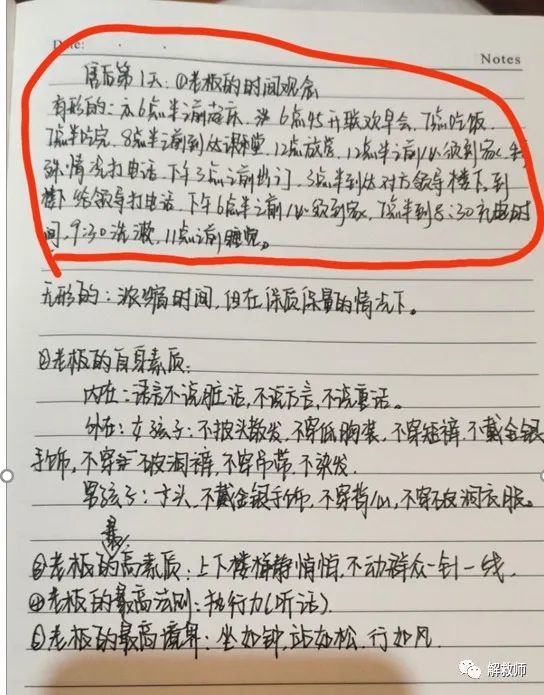 Date:
Notes
售后第1天:①老板的时间观念
有形的:① 6点半之前起床,6点45开联欢早会,7点吃饭,
7点半吃完,8点半之前到达课堂,12点放学,12点半之前必须到家,特
殊情况打电话,下午3点之前出门,3点半到达对方领导楼下,到
楼下给领导打电话,下午6点半之前必须到家,7点半到8:30充电时
间,9:30洗漱,11点之前睡觉。
无形的:浓缩时间,但在保质保量的情况下。
②老板的自身素质:
内在:语言不说脏话,不说方言,不说重话。
外在:女孩子:不披头散发,不穿低胸装,不穿短裤,不戴金银
手饰,不穿破洞裤,不穿吊带,不染发.
男孩子:寸头,不戴金银手饰,不穿背心,不穿破洞衣服。
最
③老板的高素质:上下楼梯静悄悄,不动群众一针一线.
④老板的最高法则:执行力(听话).
⑤老板的最高境界:坐如钟,站如松,行如风.
解救师